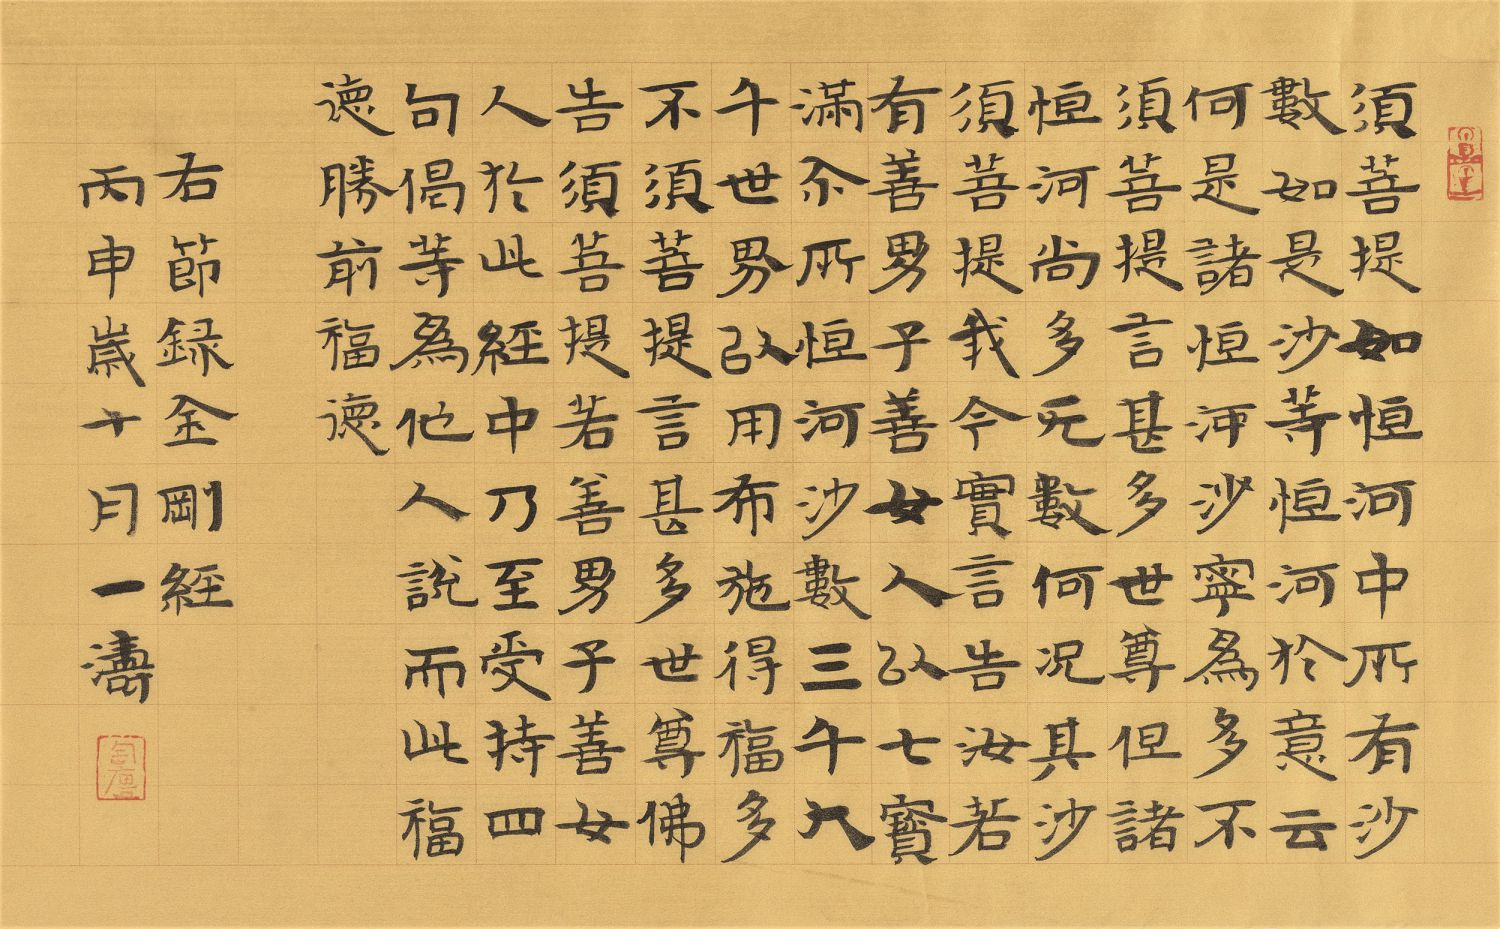 須菩提如恒河中所有沙
數如是沙等恒河於意云
何是諸恒河沙寧爲多不
須菩提言甚多世尊但諸
恒河尚多无數何況其沙
須菩提我今實言告汝若
有善男子善女人以七寶
滿尒所恒河沙數三千大
千世界以用布施得福多
不須菩提言甚多世尊佛
告須菩提若善男子善女
人於此經中乃至受持四
句偈等爲他人說而此福
德勝前福德
右節録金剛經
丙申歲十月一濤